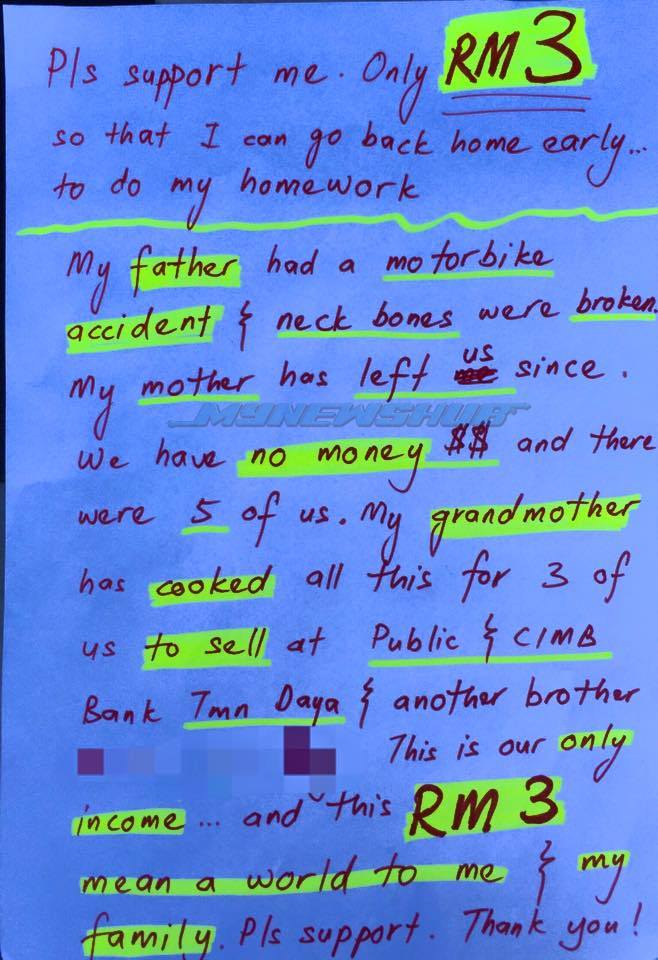 Pls support me. Only RM 3
so that I can go back home early...
to do my homework
My father had a motorbike
accident & neck bones were broken.
My mother has left us since.
MYNEWSHUB
We have no money $$ and there
were 5 of us. My grandmother
has cooked all this for 3 of
us to sell at Public & CIMB
Bank Tmn Daya & another brother
This is our only
income... and this RM 3
mean a world to me & my
family. Pls support. Thank you!